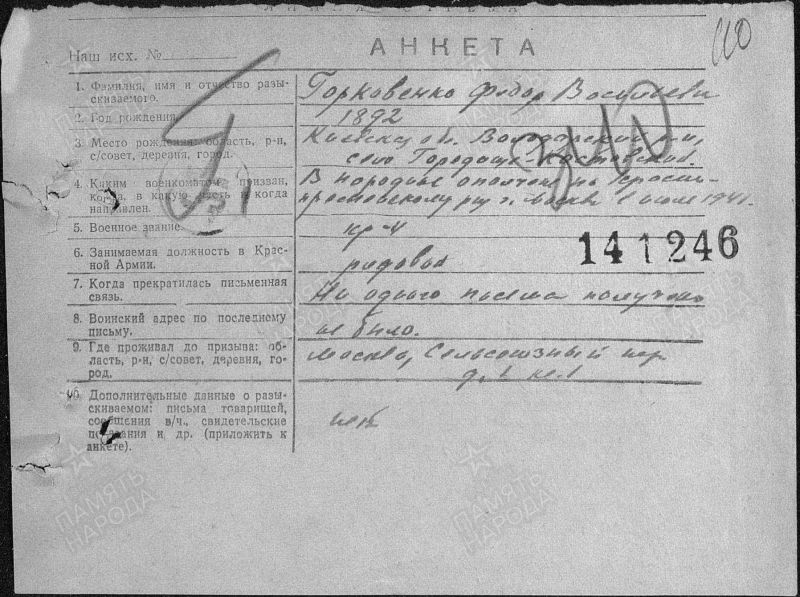 АНКЕТА
110
Наш исх. №
1. Фамилия, имя и отчество разы-
скиваемого.
Горковенко Федор Васильеви
2. Год рождения.
1892
3. Место рождения: область, р-н,
с/совет, деревня, город.
Киевска об. Володарский р-н,
село Городище-
4. Каким военкоматом призван,
когда, в какую часть и когда
направлен.
В народное ополчен по Красно-
пресненскому р-ну г. Москвы в июле 1941 г.
5. Военное звание.
кр-ц
6. Занимаемая должность в Крас-
ной Армии.
рядовой
141246
7. Когда прекратилась письменная
связь.
Ни одного письма получено
8. Воинский адрес по последнему
письму.
не было.
9. Где проживал до призыва: об-
ласть, р-н, с/совет, деревня, го-
род.
Москва, Сельсоюзный пер
д. 1 кв. 1
10. Дополнительные данные о разы-
скиваемом: письма товарищей,
сообщения в/ч., свидетельские
показания и др. (приложить к
анкете).
нет
ПАМЯТЬ
НАРОДА